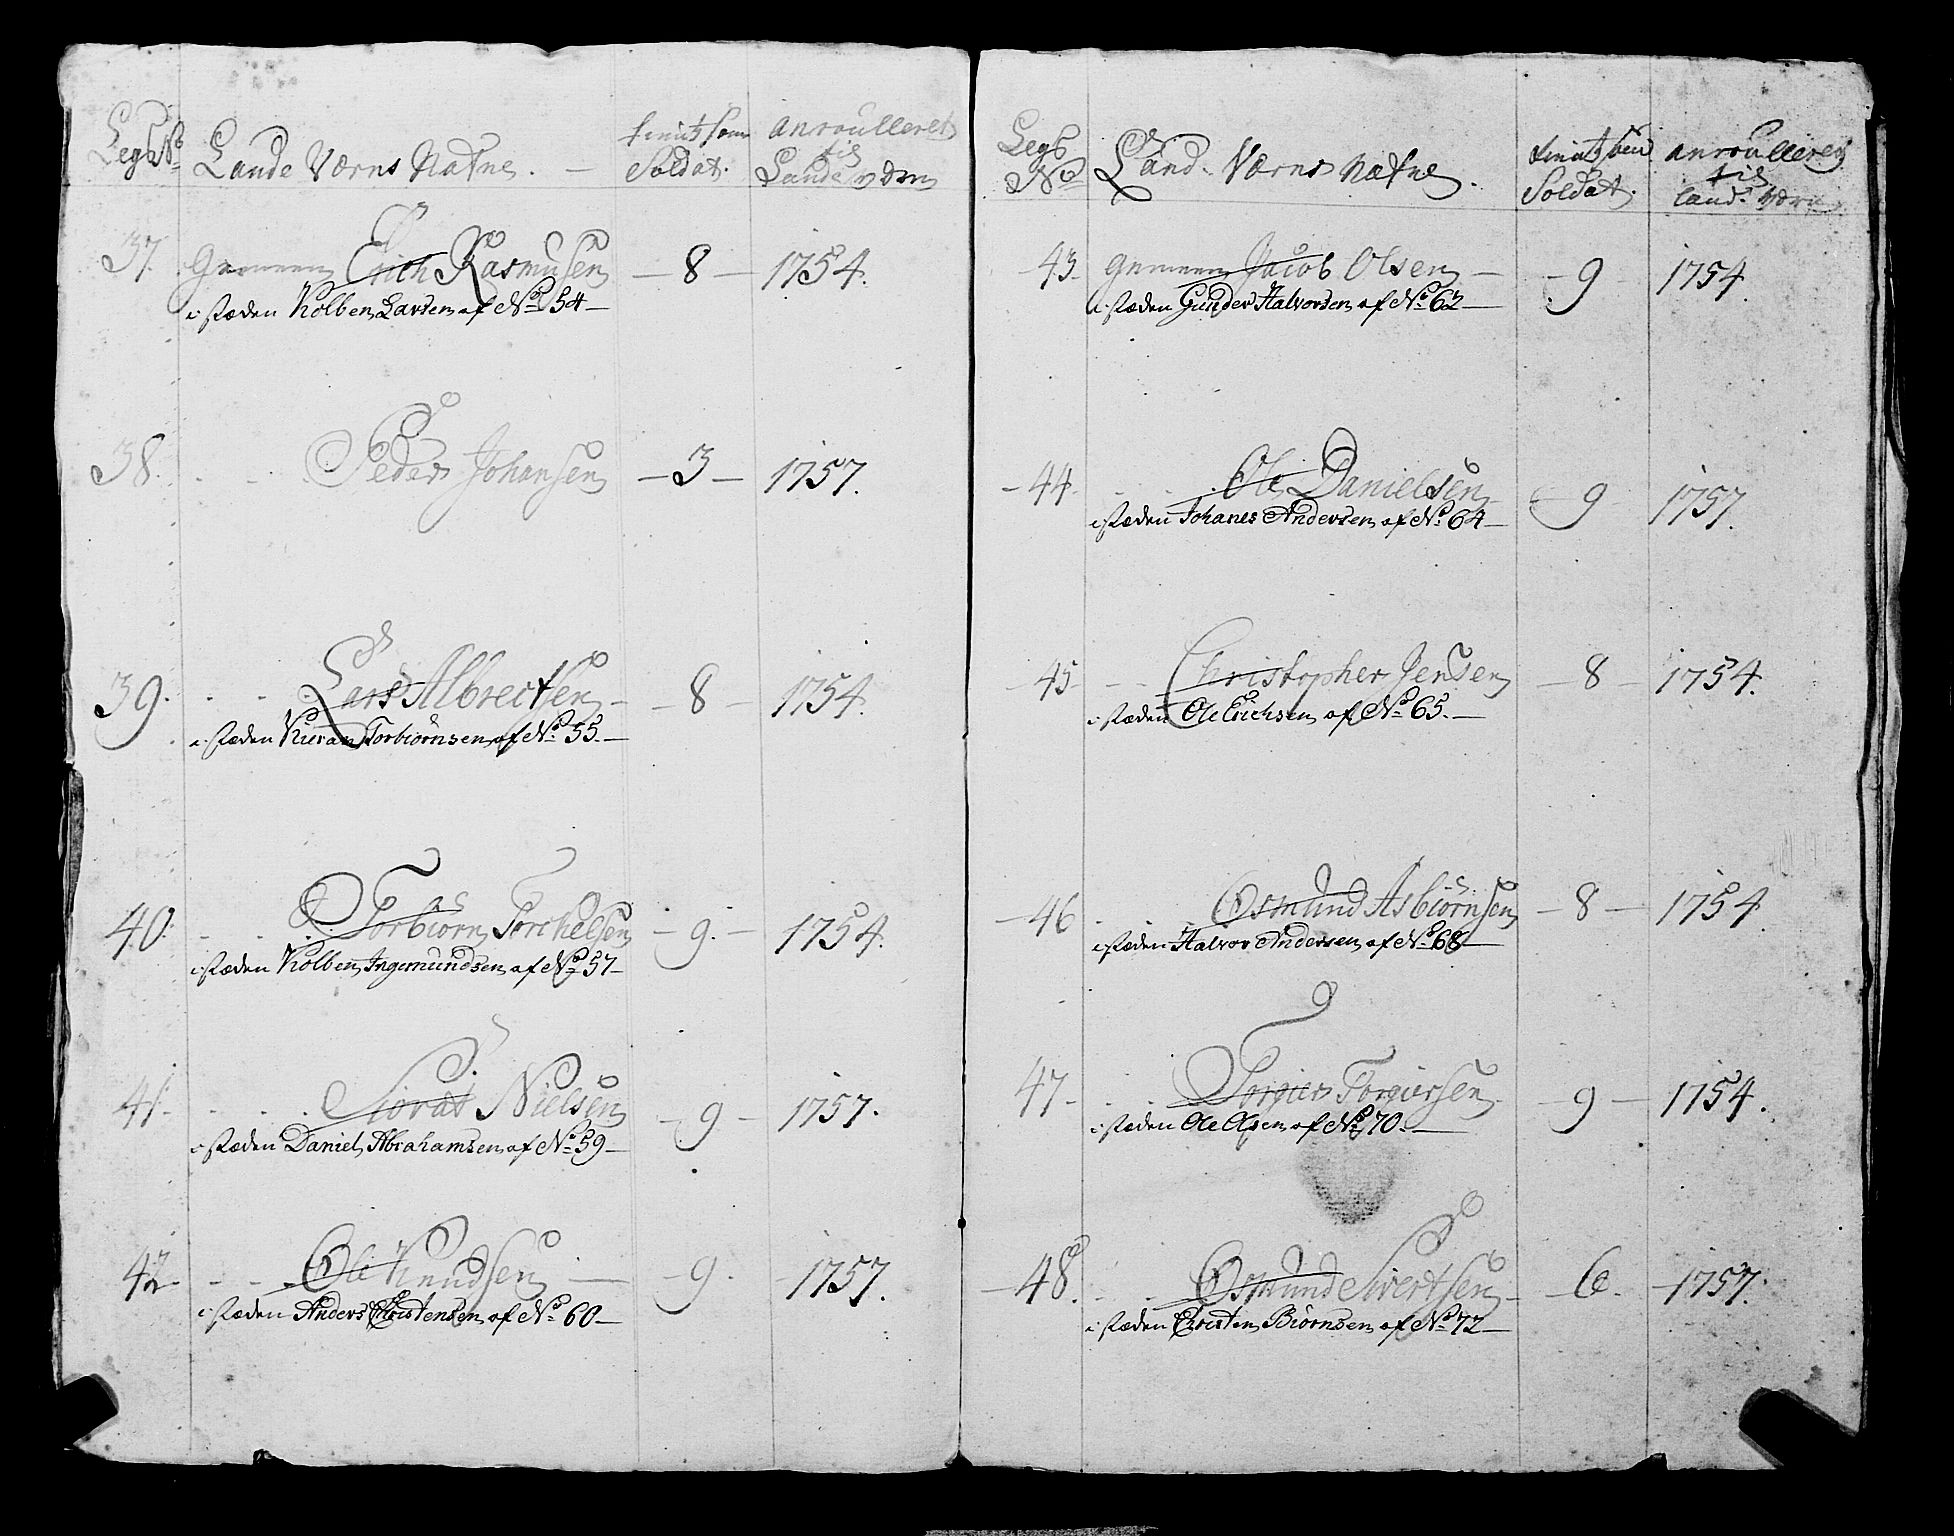 Legs No Lande Værns Nafne. tient som Soldat. anroulleret til Lande værn
37. Gemeen Erich Rasmusen 8 1754.
i stæden Kolben Larsen af No 54
38. Peder Johansen 3 1757.
39. Lars Albrectsen 8 1754.
i stæden Torbiørnsen af No 55.
40. Torbiørn Torchelsen 9. 1754.
i stæden Kolben Ingemundsen af No 57
41. Siovat Nielsen 9 1757.
i stæden Daniel Abrahamsen af No 59
42 Ole Knudsen 9. 1757.
i stæden Anders Christensen af No 60
Legs No Land Værns Nafne. tient som Soldat. anroulleret til land Værn
43 Gemeen Jacob Olsen 9 1754.
i stæden Gunder Halvorsen af No 62
44. Ole Danielsen 9 1757.
i stæden Johanes Andersen af No 64
45 Christopher Jensen 8 1754.
i stæden Ole Erichsen af No 65.
46 Osmund Asbiørnsen 8 1754
i stæden Halvor Andersen af No 68
47 Torgier Torgiersen 9 1754.
i stæden Ole Olsen af No 70.
48. Osmund Sivertsen 6. 1757.
i stæden Christen Biørnsen af No 72